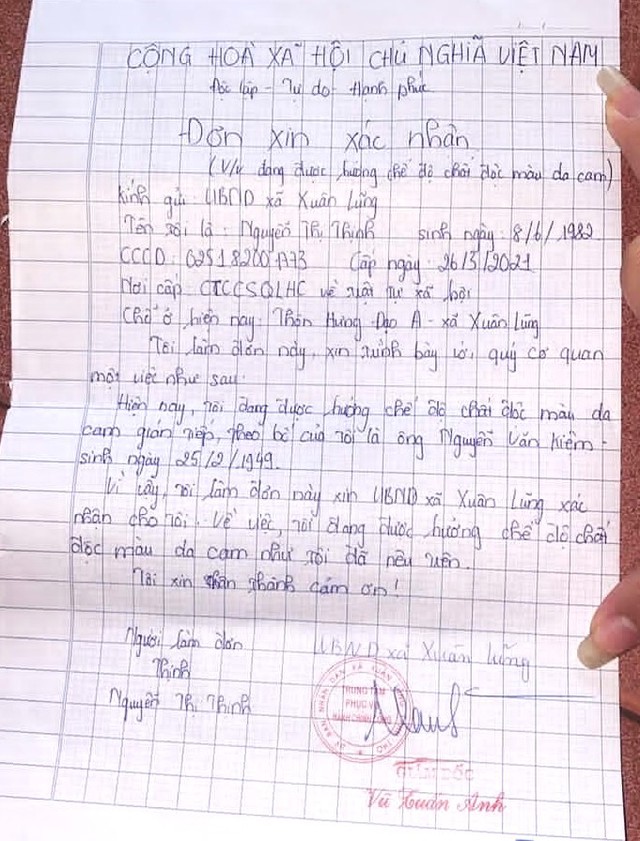 CỘNG HOÀ XÃ HỘI CHỦ NGHĨA VIỆT NAM
Độc lập - Tự do - Hạnh phúc
Đơn xin xác nhận
(V/v đang được hưởng chế độ chất độc màu da cam)
Kính gửi: UBND xã Xuân Lũng
Tên tôi là: Nguyễn Thị Thịnh sinh ngày: 8/6/1982
CCCD: Cấp ngày: 26/3/2021
Nơi cấp: CTCCSQLHC về trật tự xã hội
Chỗ ở hiện nay: Thôn Hưng Đạo A - xã Xuân Lũng
Tôi làm đơn này, xin trình bày với quý cơ quan
một việc như sau:
Hiện nay, tôi đang được hưởng chế độ chất độc màu da
cam gián tiếp, theo bố của tôi là ông Nguyễn Văn Kiệm -
sinh ngày 25/2/1949.
Vì vậy, tôi làm đơn này xin UBND xã Xuân Lũng xác
nhận cho tôi. Về việc, tôi đang được hưởng chế độ chất
độc màu da cam như tôi đã nêu trên.
Tôi xin chân thành cảm ơn!
Người làm đơn UBND xã Xuân Lũng
Thịnh
Nguyễn Thị Thịnh
TRUNG TÂM
PHỤC VỤ
HÀNH CHÍNH CÔNG
GIÁM ĐỐC
Vũ Xuân Anh